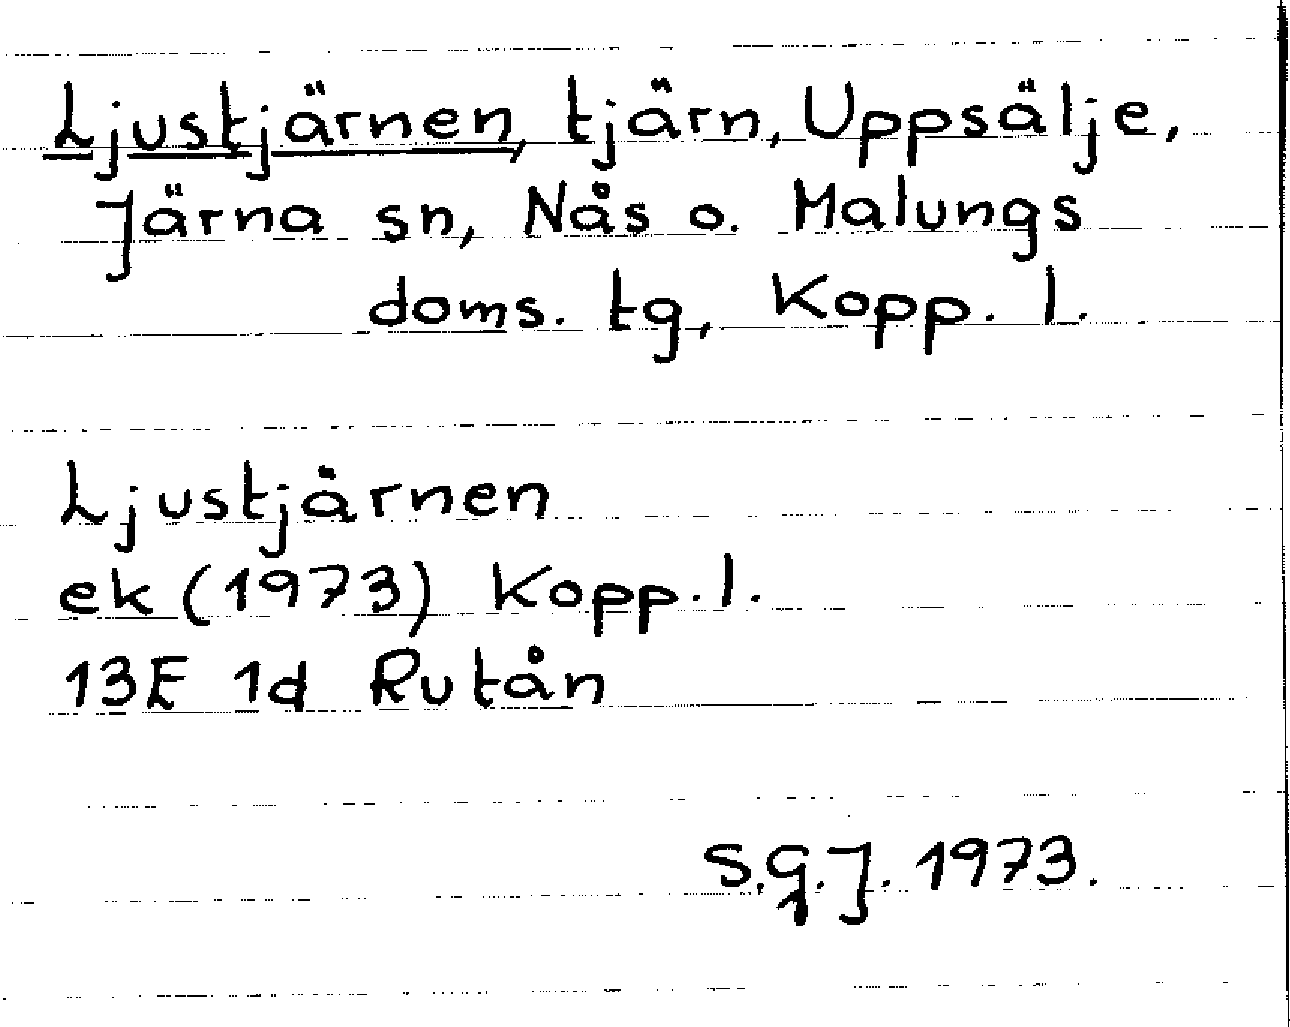 Ljustjärnen, tjärn, Uppsälje,
Järna sn, Nås o. Malungs
doms. tg, Kopp. l.
Ljustjärnen
ek (1973) Kopp. l.
13E 1d Rutån
S.G.J. 1973.